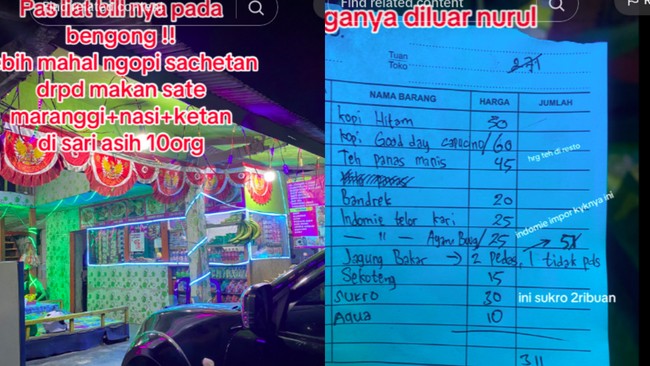 Pas liat bill nya pada
Find related content
bengong !!
bih mahal ngopi sachetan
drpd makan sate
maranggi+nasi+ketan
di sari asih 10org
Find related content
ganya diluar nurul
Tuan
Toko
NAMA BARANG HARGA JUMLAH
kopi Hitam 30
kopi Good day capucino/60
Teh panas manis 45 hrg teh di resto
Bandrek 20
Indomie telor kari 25 indomie impor kyknya ini
— " — Ayam Bawang/25 → 5x
Jagung Bakar → 2 Pedas, 1 tidak pds
Sekoteng 15
sukro 30 ini sukro 2ribuan
Aqua 10
311